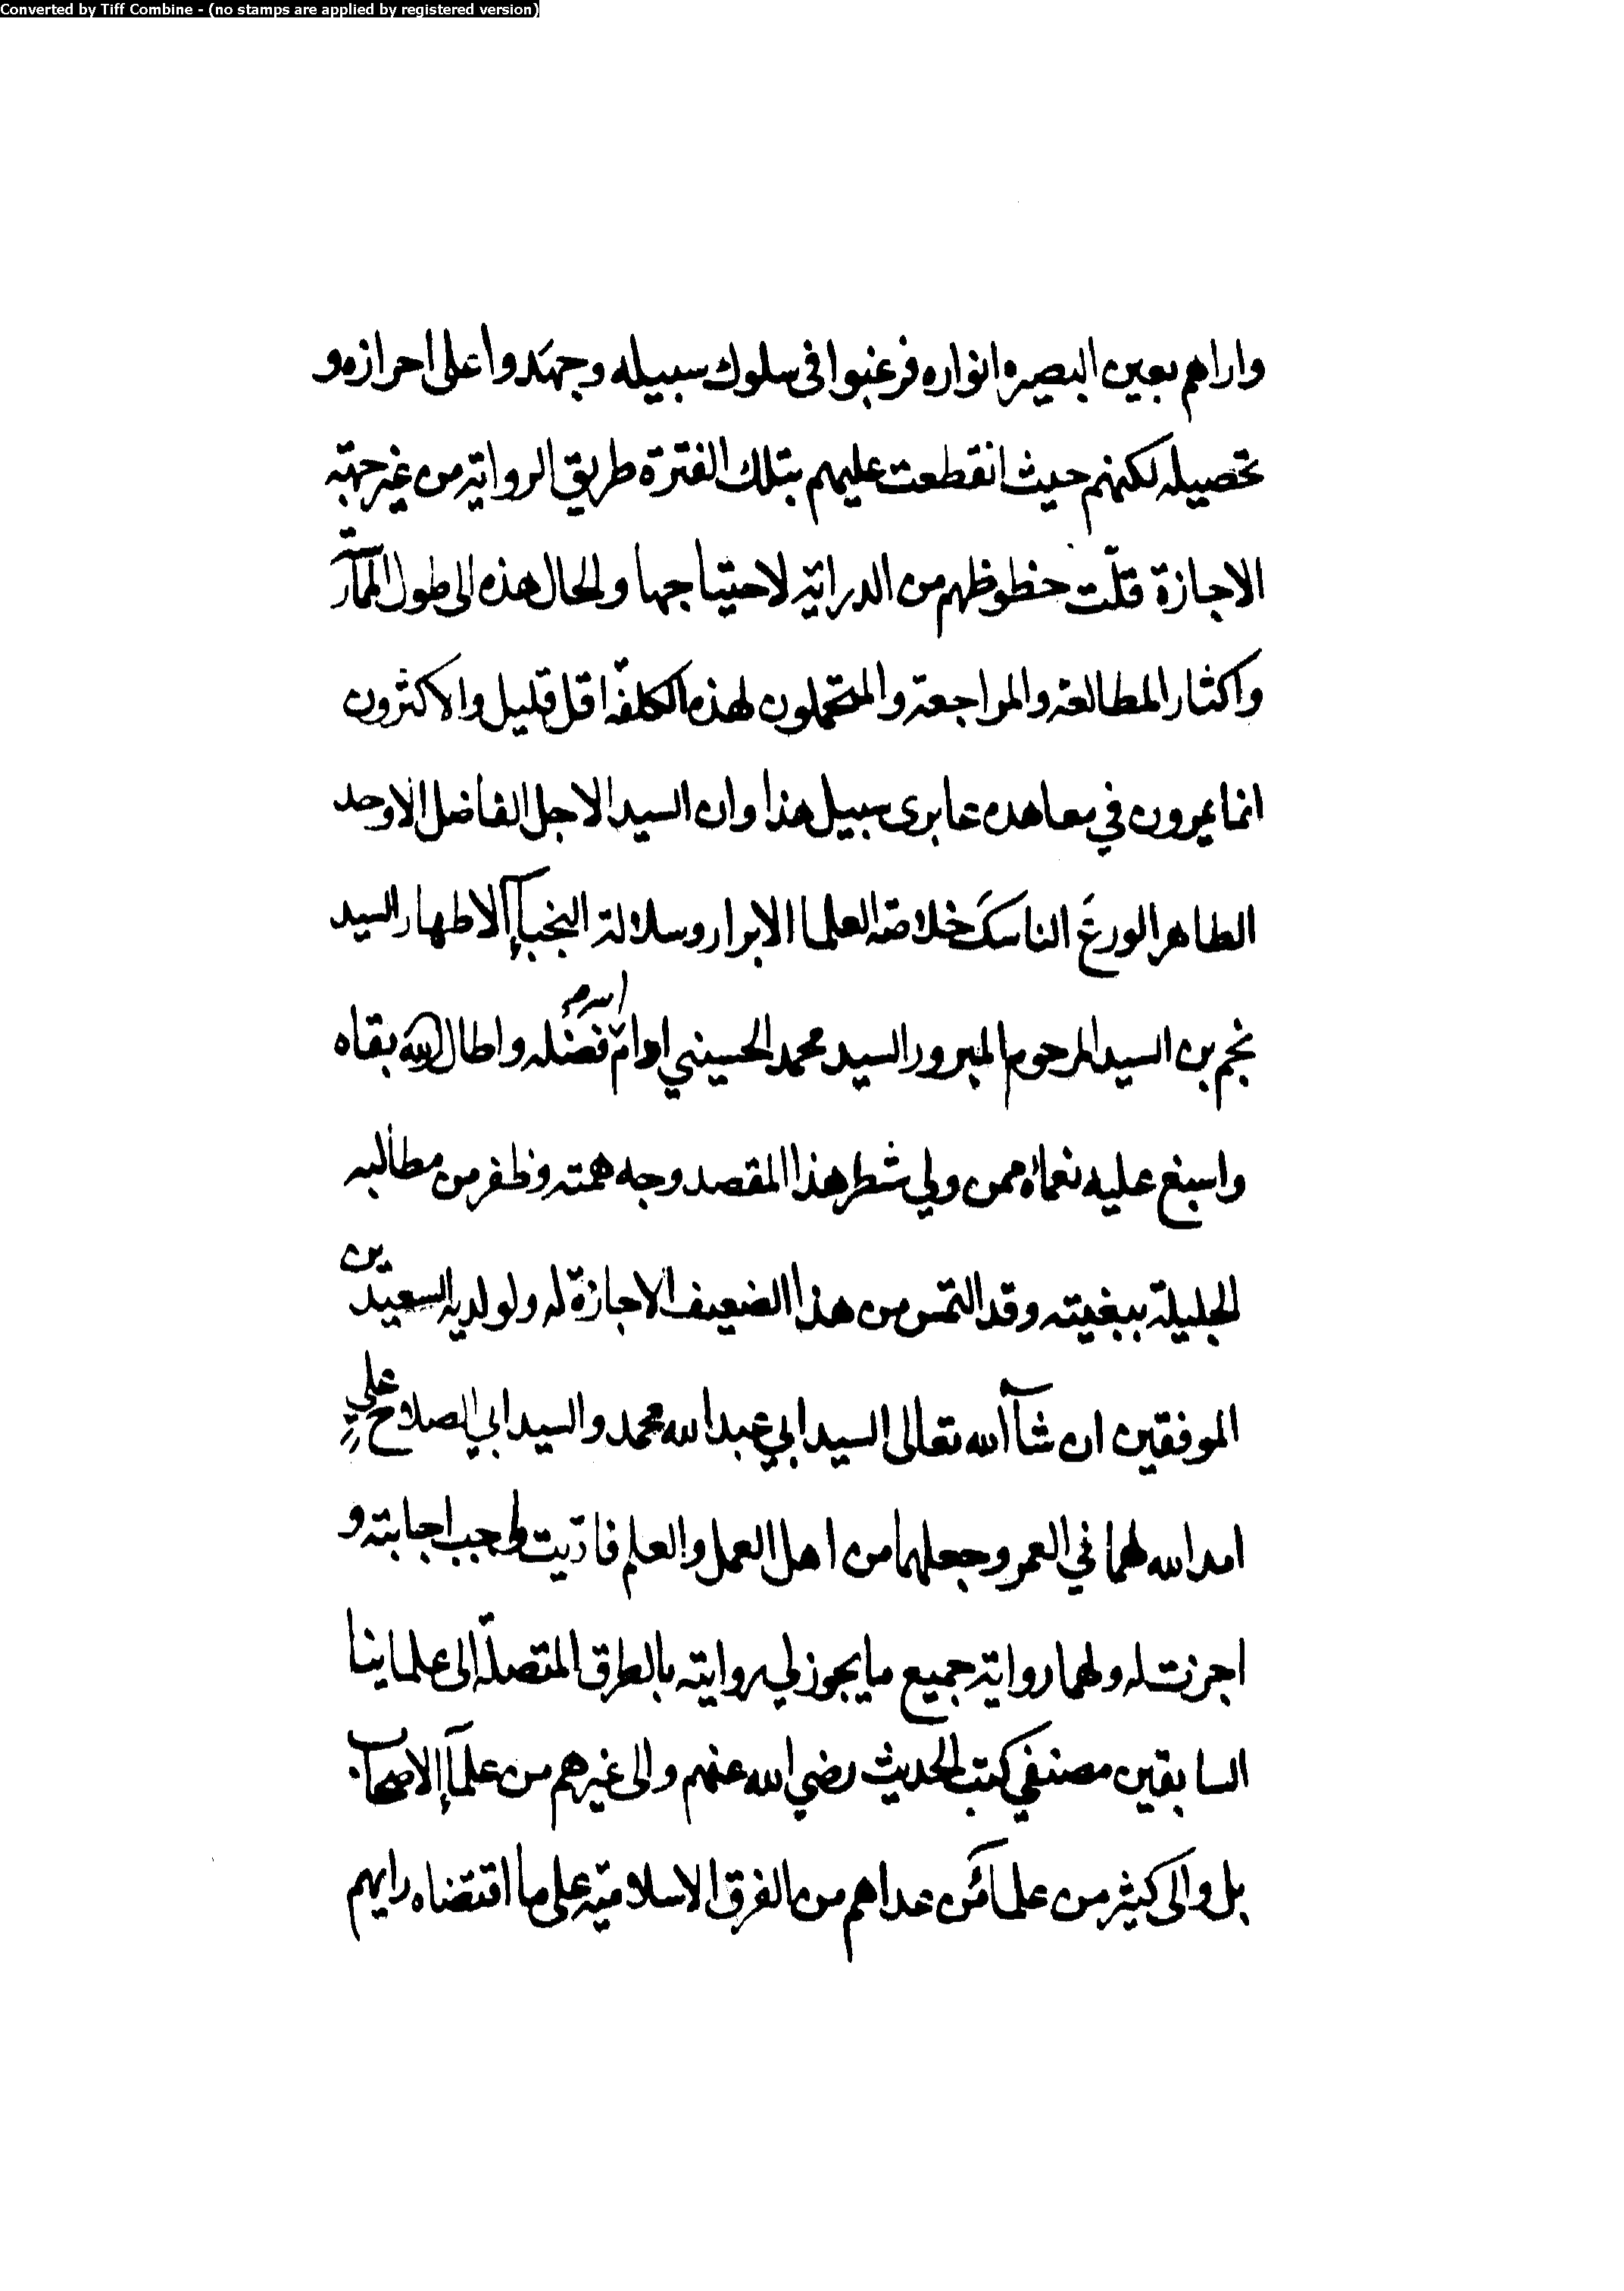 Converted by Tiff Combine - (no stamps are applied by registered version)
واراهم بعين البصيره انواره فرغبوا فى سلوك سبيله وجهدوا على احرازه و
تحصيله لكنهم حيث انقطعت عليهم بتلك الفترة طريق الرواية من غير جهة
الاجازة قلّت حظوظهم من الدراية لاحتياجها والحال هذه الى طول الممارّسة
واكثار المطالعة والمراجعة والمتحملون لهذه الكلفة اقل قليل والاكثرون
انما يمرون في معاهده عابرى سبيل هذا وان السيد الاجل الفاضل الاوحد
الطاهر الورع الناسك خلاصة العلما الابرار وسلالة النجبآإ الاطهار السيد
نجم بن السيد المرحوم المبرور السيد محمد الحسيني ادام الله فضله واطال الله بقاه
واسبغ عليه نعماه ممن ولي شطر هذا المقصد وجه همته وظفر من مطالبه
الجليلة ببغيته وقد التمس من هذا الضعيف الاجازة له ولولديه السعيدين
الموفقين ان شآ الله تعالى السيد ابي عبد الله محمد والسيد ابي الصلاح علي
امد الله لهما في العمر وجعلهما من اهل العمل والعلم فادّيت واجب اجابته و
اجزت له ولهما رواية جميع ما يجوز لي روايته بالطرق المتصلة الى علماينا
السابقين مصنفي كتب الحديث رضي الله عنهم والى غيرهم من علمآإ الاصحاب
بل والى كثير من علمآء من عداهم من الفرق الاسلامية على ما اقتضاه رايهم